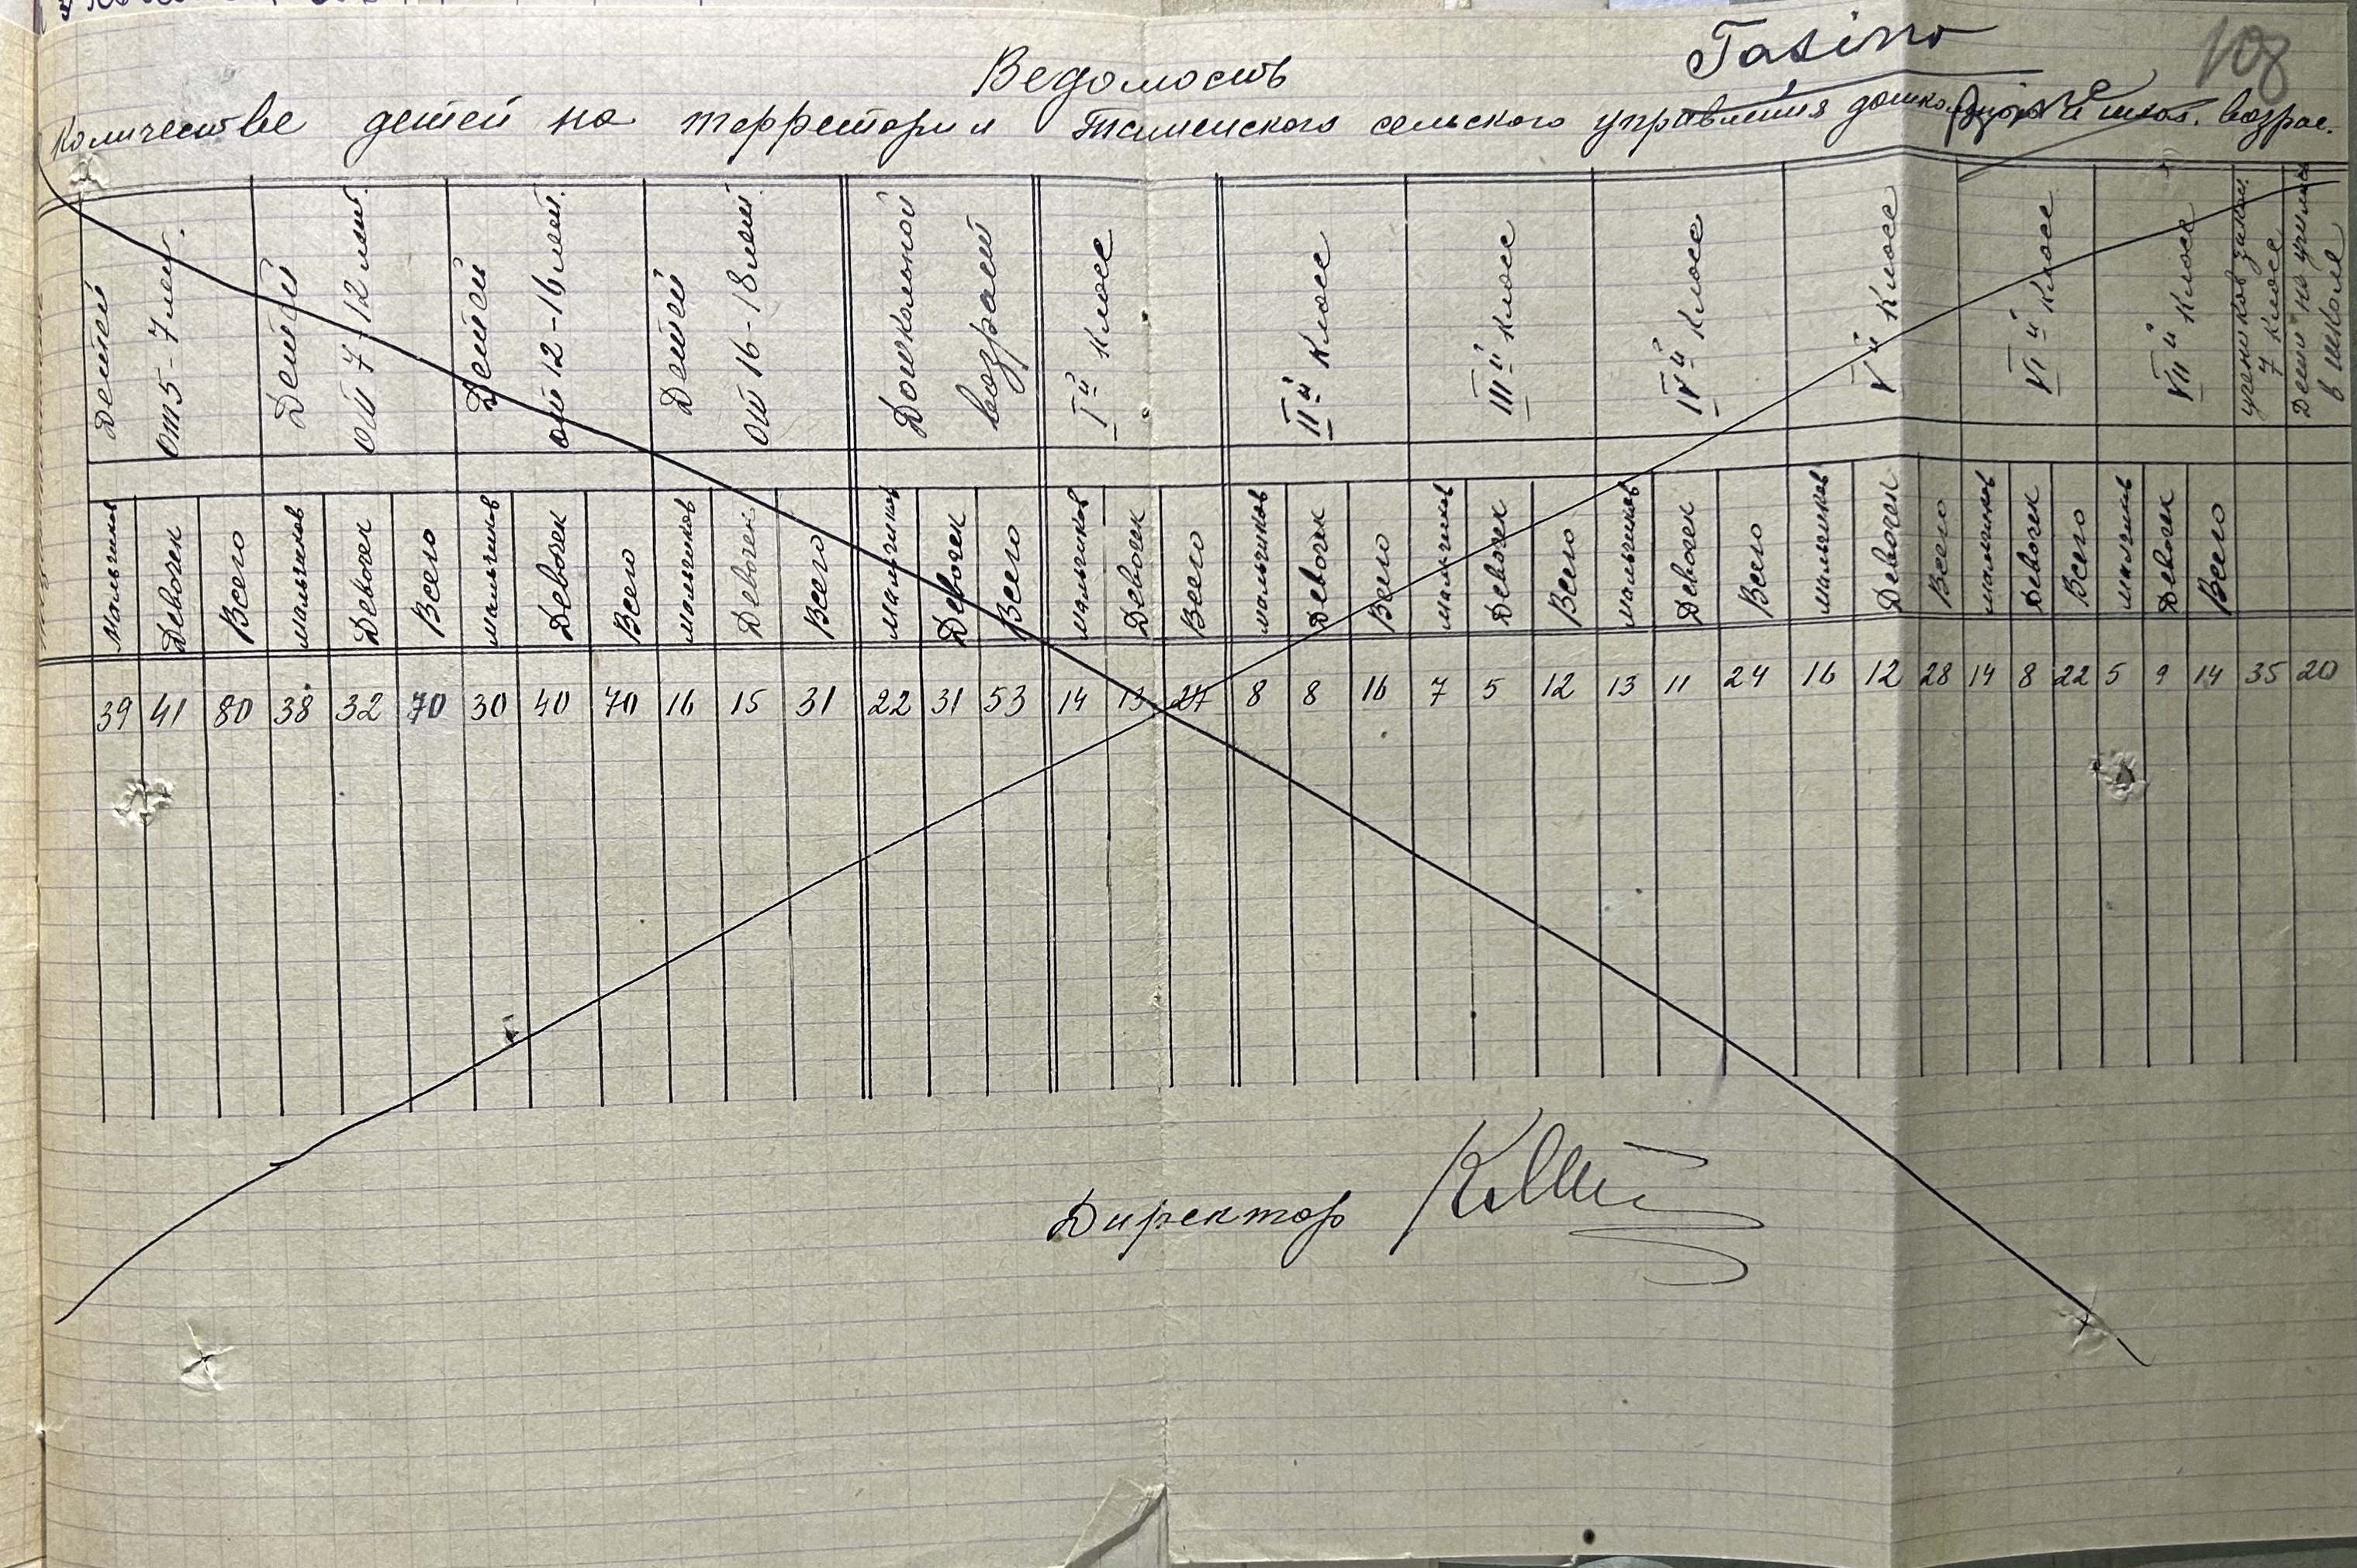 108
Ведомость
Количестве детей на территории сельского управления и школ. возрас.
Детей от 5-7 лет.
Детей от 7-12 лет.
Детей от 12-16 лет.
Детей от 16-18 лет.
Дошкольной возраст
Iй класс
IIй класс
IIIй класс
IVй класс
Vй класс
VIй класс
VIIй класс
учеников закон. 7 класс
Дети не учились в школе
мальчиков Девочек Всего мальчиков Девочек Всего мальчиков Девочек Всего мальчиков Девочек Всего мальчиков Девочек Всего мальчиков Девочек Всего мальчиков Девочек Всего мальчиков Девочек Всего мальчиков Девочек Всего мальчиков Девочек Всего мальчиков Девочек Всего мальчиков Девочек Всего
39 41 80 38 32 70 30 40 70 16 15 31 22 31 53 14 13 27 8 8 16 7 5 12 13 11 24 16 12 28 14 8 22 5 9 14 35 20
Директор